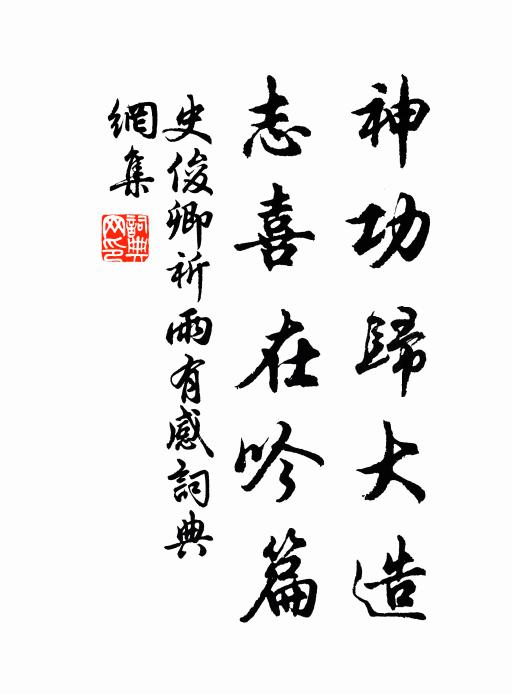 神功歸大造
志喜在吟篇
史俊卿祈雨有感詞典
網集
詞典
網印